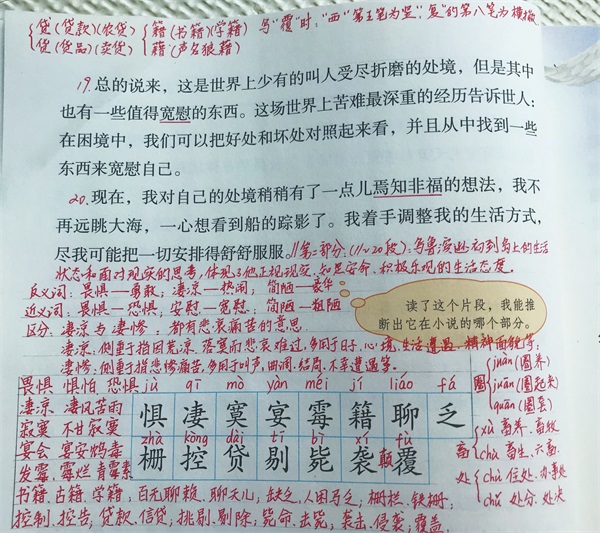 贷(贷款)(农贷) 籍(书籍)(学籍) 写"覆"时,"西"第五笔为竖,"复"的第八笔为横撇
货(货品)(卖货) 藉(声名狼藉)
19.总的说来,这是世界上少有的叫人受尽折磨的处境,但是其中
也有一些值得宽慰的东西。这场世界上苦难最深重的经历告诉世人:
在困境中,我们可以把好处和坏处对照起来看,并且从中找到一些
东西来宽慰自己。
20.现在,我对自己的处境稍稍有了一点儿焉知非福的想法,我不
再远眺大海,一心想看到船的踪影了。我着手调整我的生活方式,
尽我可能把一切安排得舒舒服服。//第二部分:(11~20段):鲁滨逊初到岛上的生活
状态和面对现实的思考,体现了他正视现实、知足安命、积极乐观的生活态度。
反义词:畏惧—勇敢;凄凉—热闹;简陋—豪华
近义词:畏惧—恐惧;安慰—宽慰;简陋—粗陋
读了这个片段,我能推
断出它在小说的哪个部分。
区分:凄凉与凄惨:都有悲哀痛苦的意思.
凄凉:侧重于指因荒凉、落寞而悲哀难过,多用于时、心境、生活遭遇、精神面貌等;
凄惨:侧重于指悲惨痛苦,多用于叫声、曲调、结局、不幸遭遇等。
畏惧 惧怕 恐惧 jù qī mò yàn méi jí liáo fá
凄凉 凄风苦雨 惧 凄 寞 宴 霉 籍 聊 乏
寂寞 不甘寂寞
zhà kòng dài tī bì xí fù
宴会 宴安鸩毒 栅 控 贷 剔 毙 袭 颠覆
发霉 霉烂 青霉素
圈 juàn(圈养)
juān(圈起来)
quān(圈套)
畜 xù 畜养、畜牧
chù 畜生、六畜
处 chǔ 住处、办事处
chǔ 处分、处决
书籍、古籍、学籍;百无聊赖、聊天儿;缺乏、人困马乏;栅栏、铁栅;
控制、控告;贷款、信贷;挑剔、剔除;毙命、击毙;袭击、侵袭;覆盖